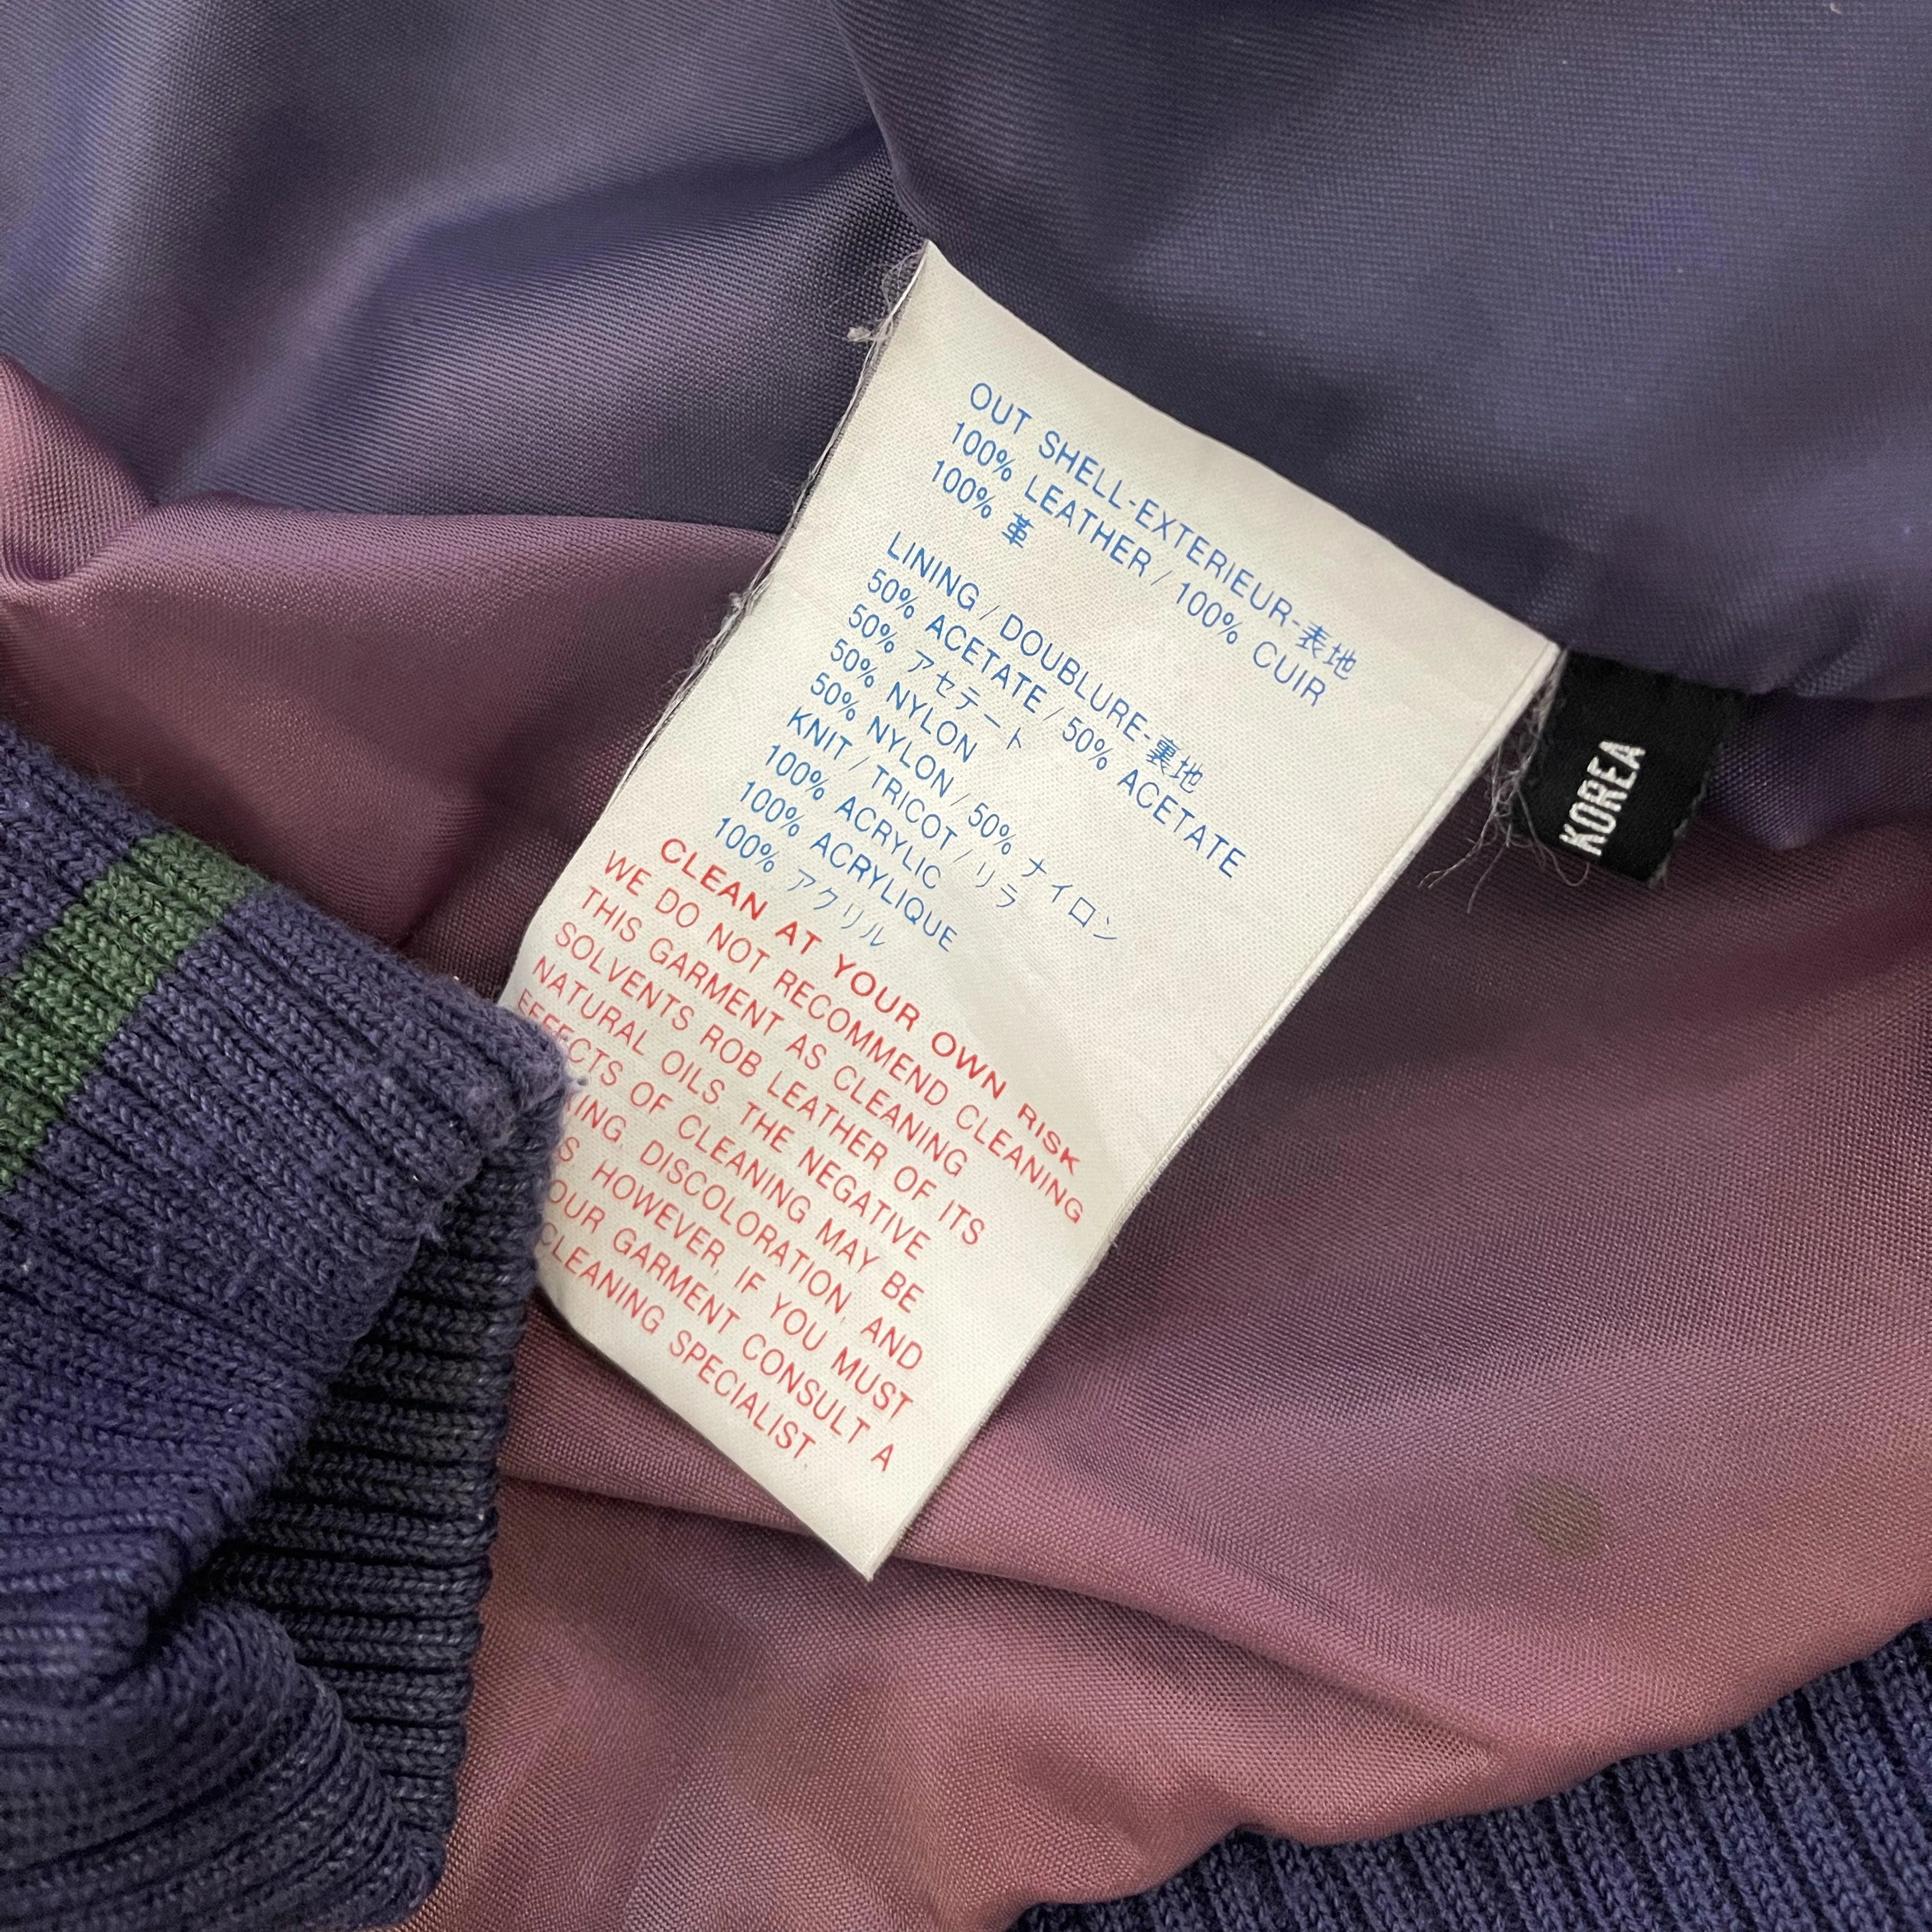 OUT SHELL-EXTERIEUR-表地
100% LEATHER / 100% CUIR
100% 革
LINING / DOUBLURE-裏地
50% ACETATE / 50% ACETATE
50% アセテート
50% NYLON
50% NYLON / 50% ナイロン
KNIT / TRICOT / リラ
100% ACRYLIC
100% ACRYLIQUE
100% アクリル
CLEAN AT YOUR OWN RISK
WE DO NOT RECOMMEND CLEANING
THIS GARMENT AS CLEANING
SOLVENTS ROB LEATHER OF ITS
NATURAL OILS. THE NEGATIVE
EFFECTS OF CLEANING MAY BE
DISCOLORATION, AND
HOWEVER, IF YOU MUST
GARMENT CONSULT A
CLEANING SPECIALIST
KOREA